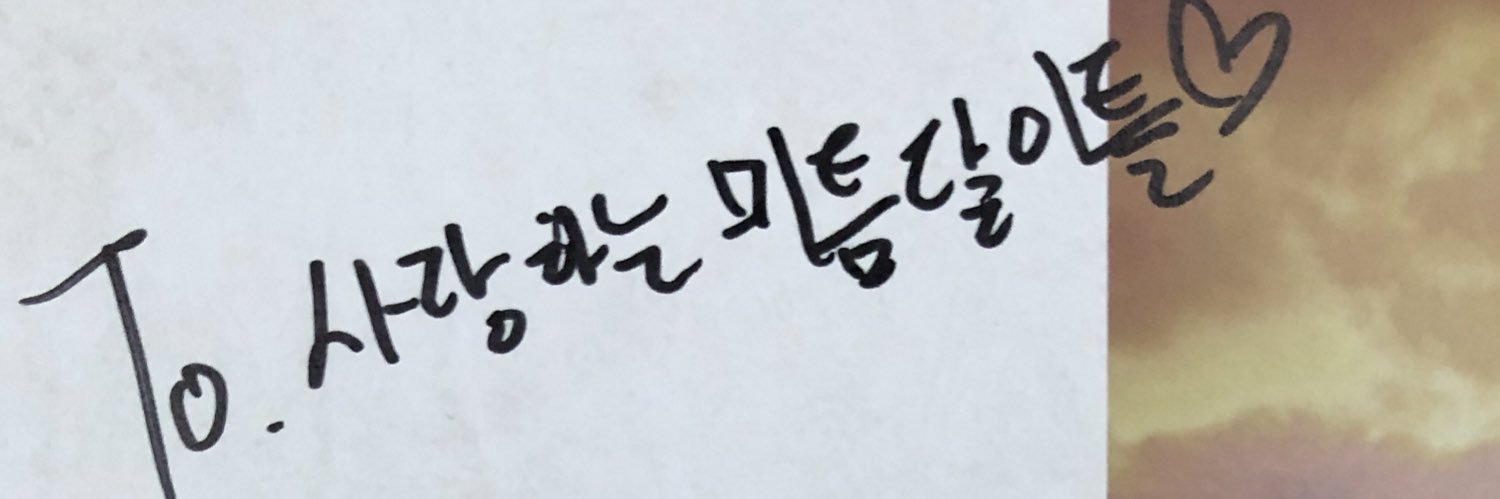 To. 사랑하는 미틈달이들♡